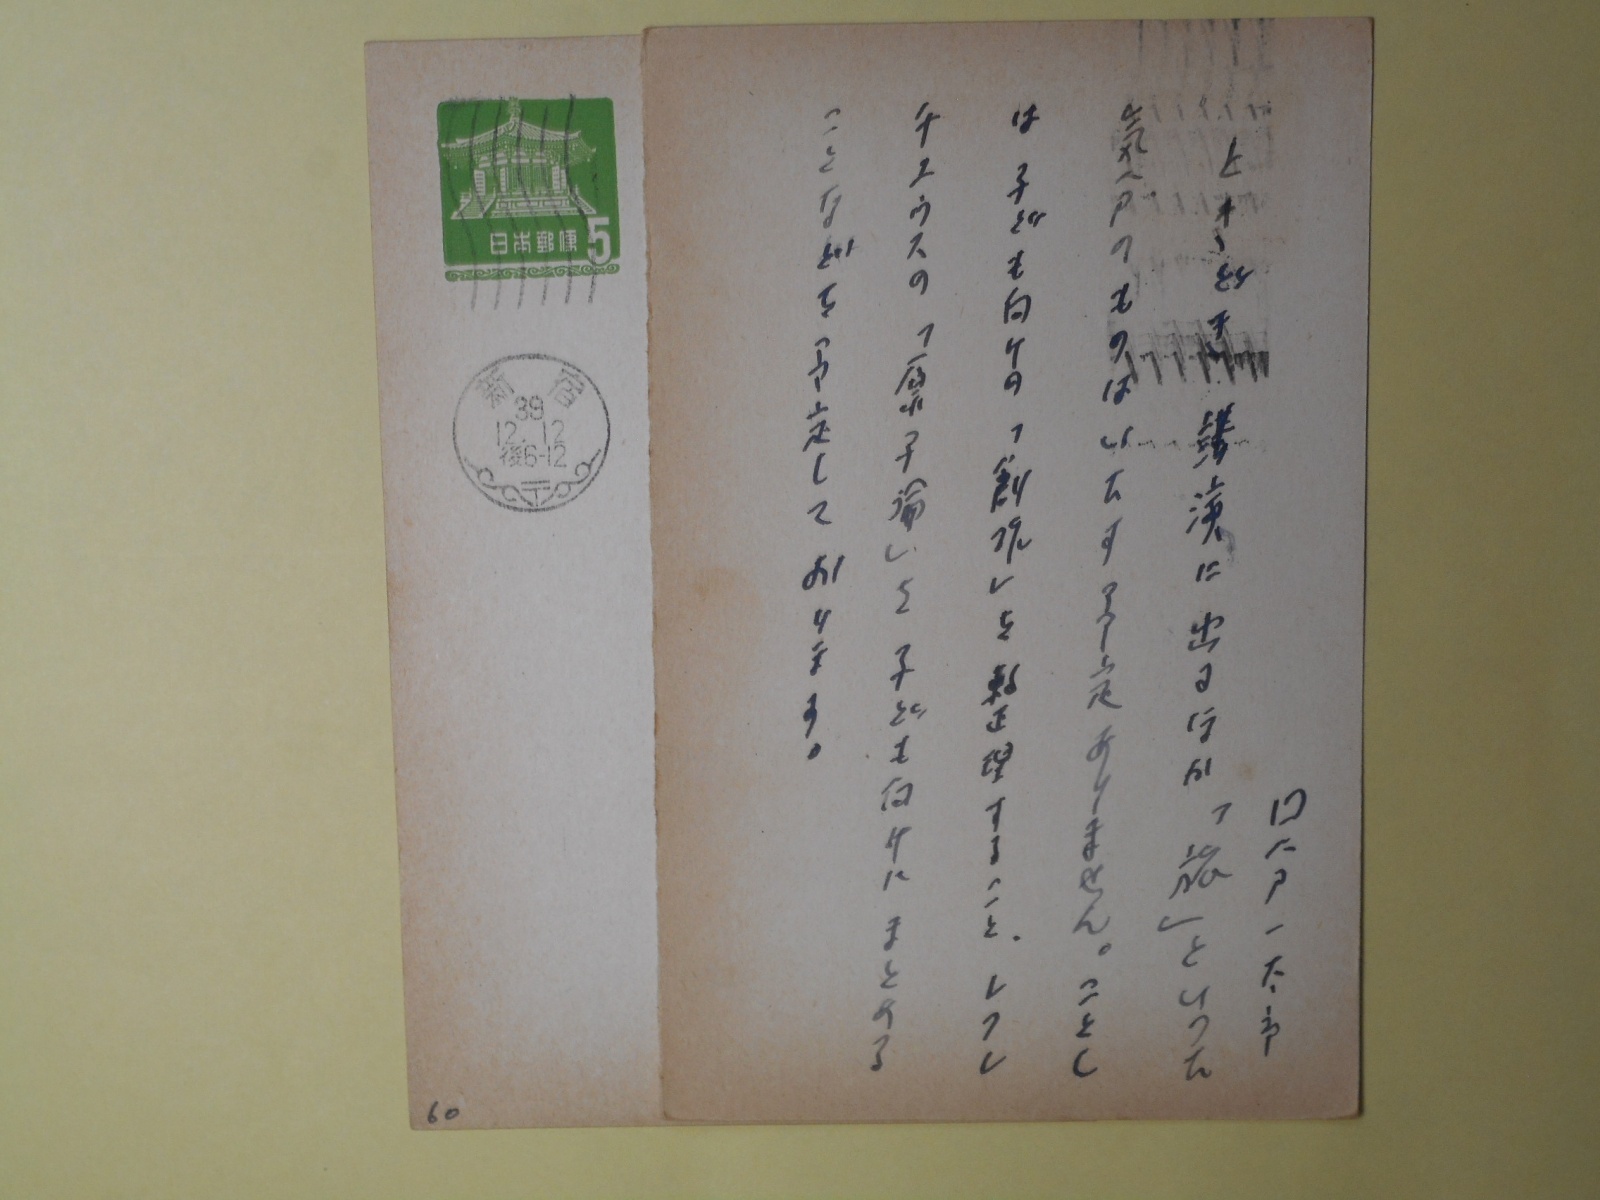 国分一太郎
ときどき、講演に出るほか「旅」といった
気分のものはいたす予定ありません。ことし
は子ども向けの「創作」を整理すること、ルクレ
チュウスの「原子論」を子ども向けにまとめる
ことなどを予定しております。
日本郵便 5
新宿
39
12.12
後6-12
60